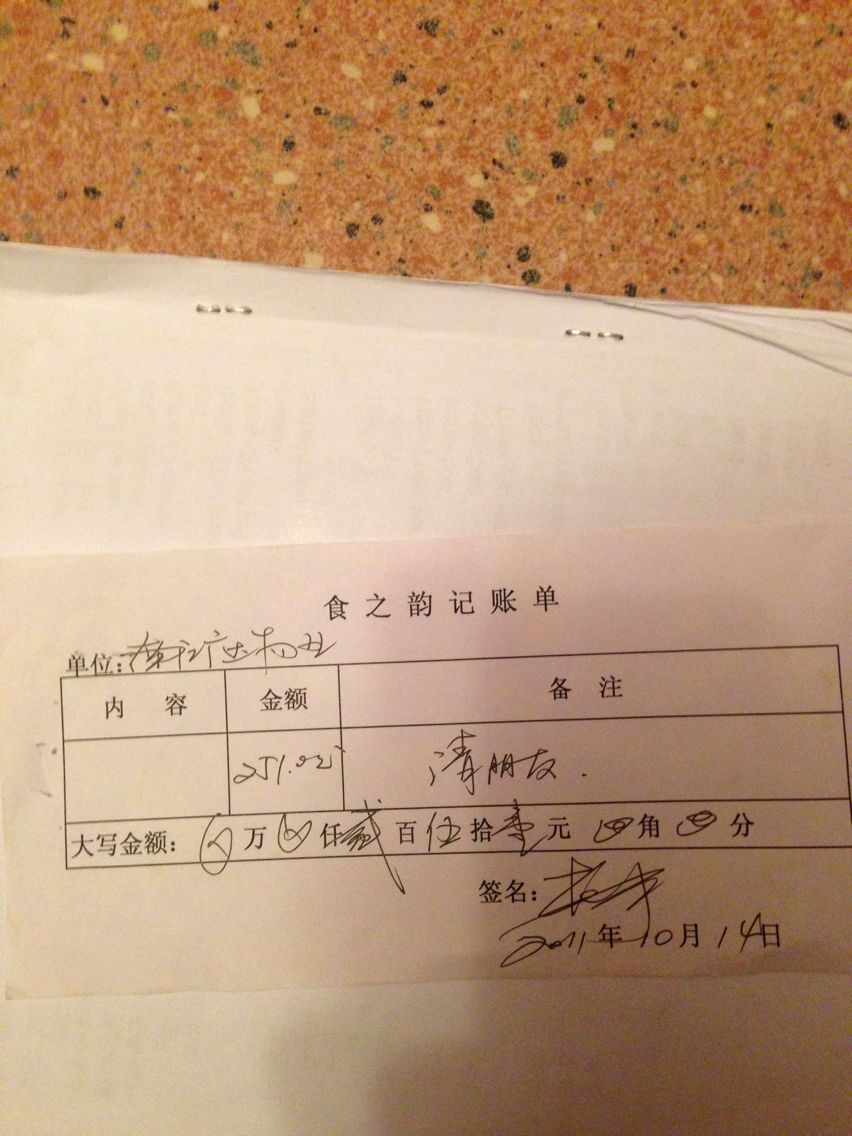 食之韵记账单
单位:
内容 金额 备注
251.00 请朋友.
大写金额: 万 仟贰百伍拾壹元 角 分
签名:
2011年10月14日